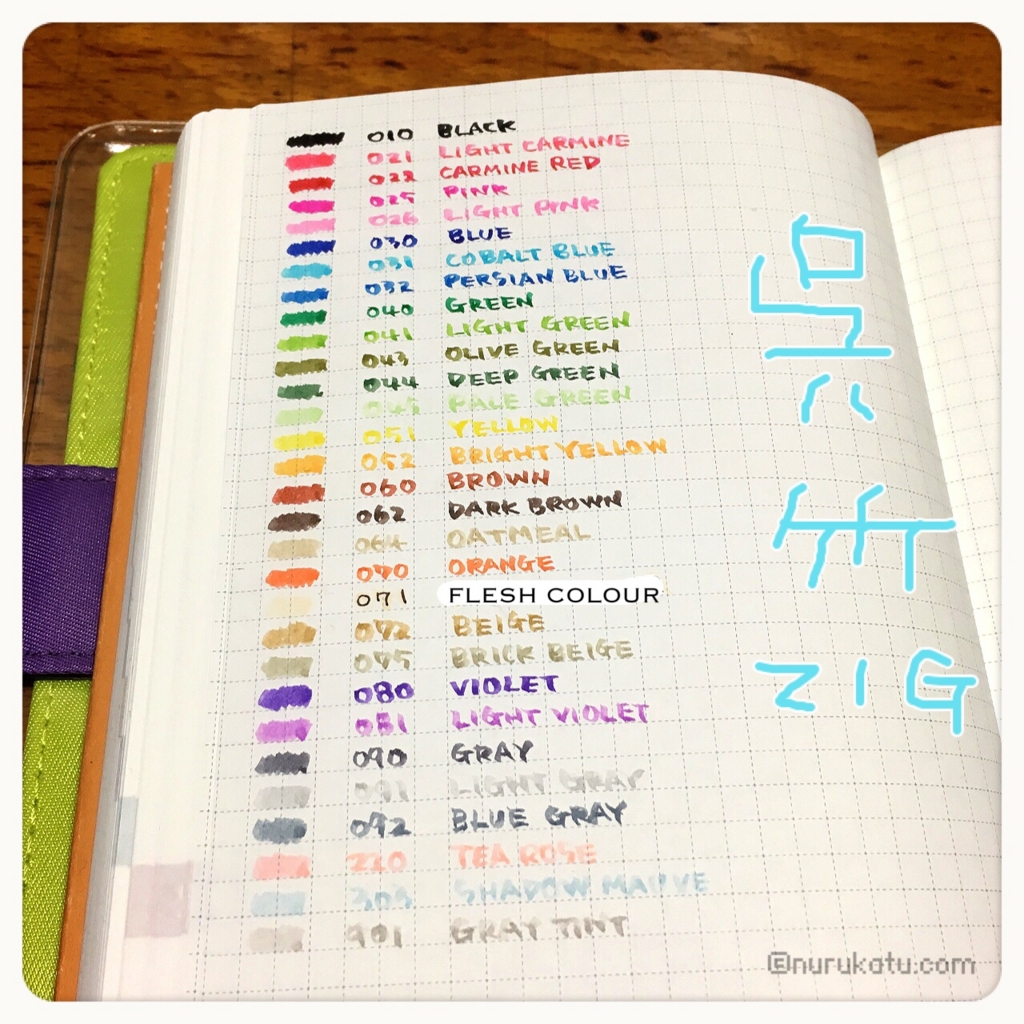 010 BLACK
021 LIGHT CARMINE
022 CARMINE RED
025 PINK
026 LIGHT PINK
030 BLUE
031 COBALT BLUE
032 PERSIAN BLUE
040 GREEN
041 LIGHT GREEN
043 OLIVE GREEN
044 DEEP GREEN
045 PALE GREEN
051 YELLOW
052 BRIGHT YELLOW
060 BROWN
062 DARK BROWN
064 OATMEAL
070 ORANGE
071 FLESH COLOUR
072 BEIGE
075 BRICK BEIGE
080 VIOLET
081 LIGHT VIOLET
090 GRAY
091 LIGHT GRAY
092 BLUE GRAY
220 TEA ROSE
303 SHADOW MAUVE
901 GRAY TINT
呉
竹
ZIG
©nurukatu.com